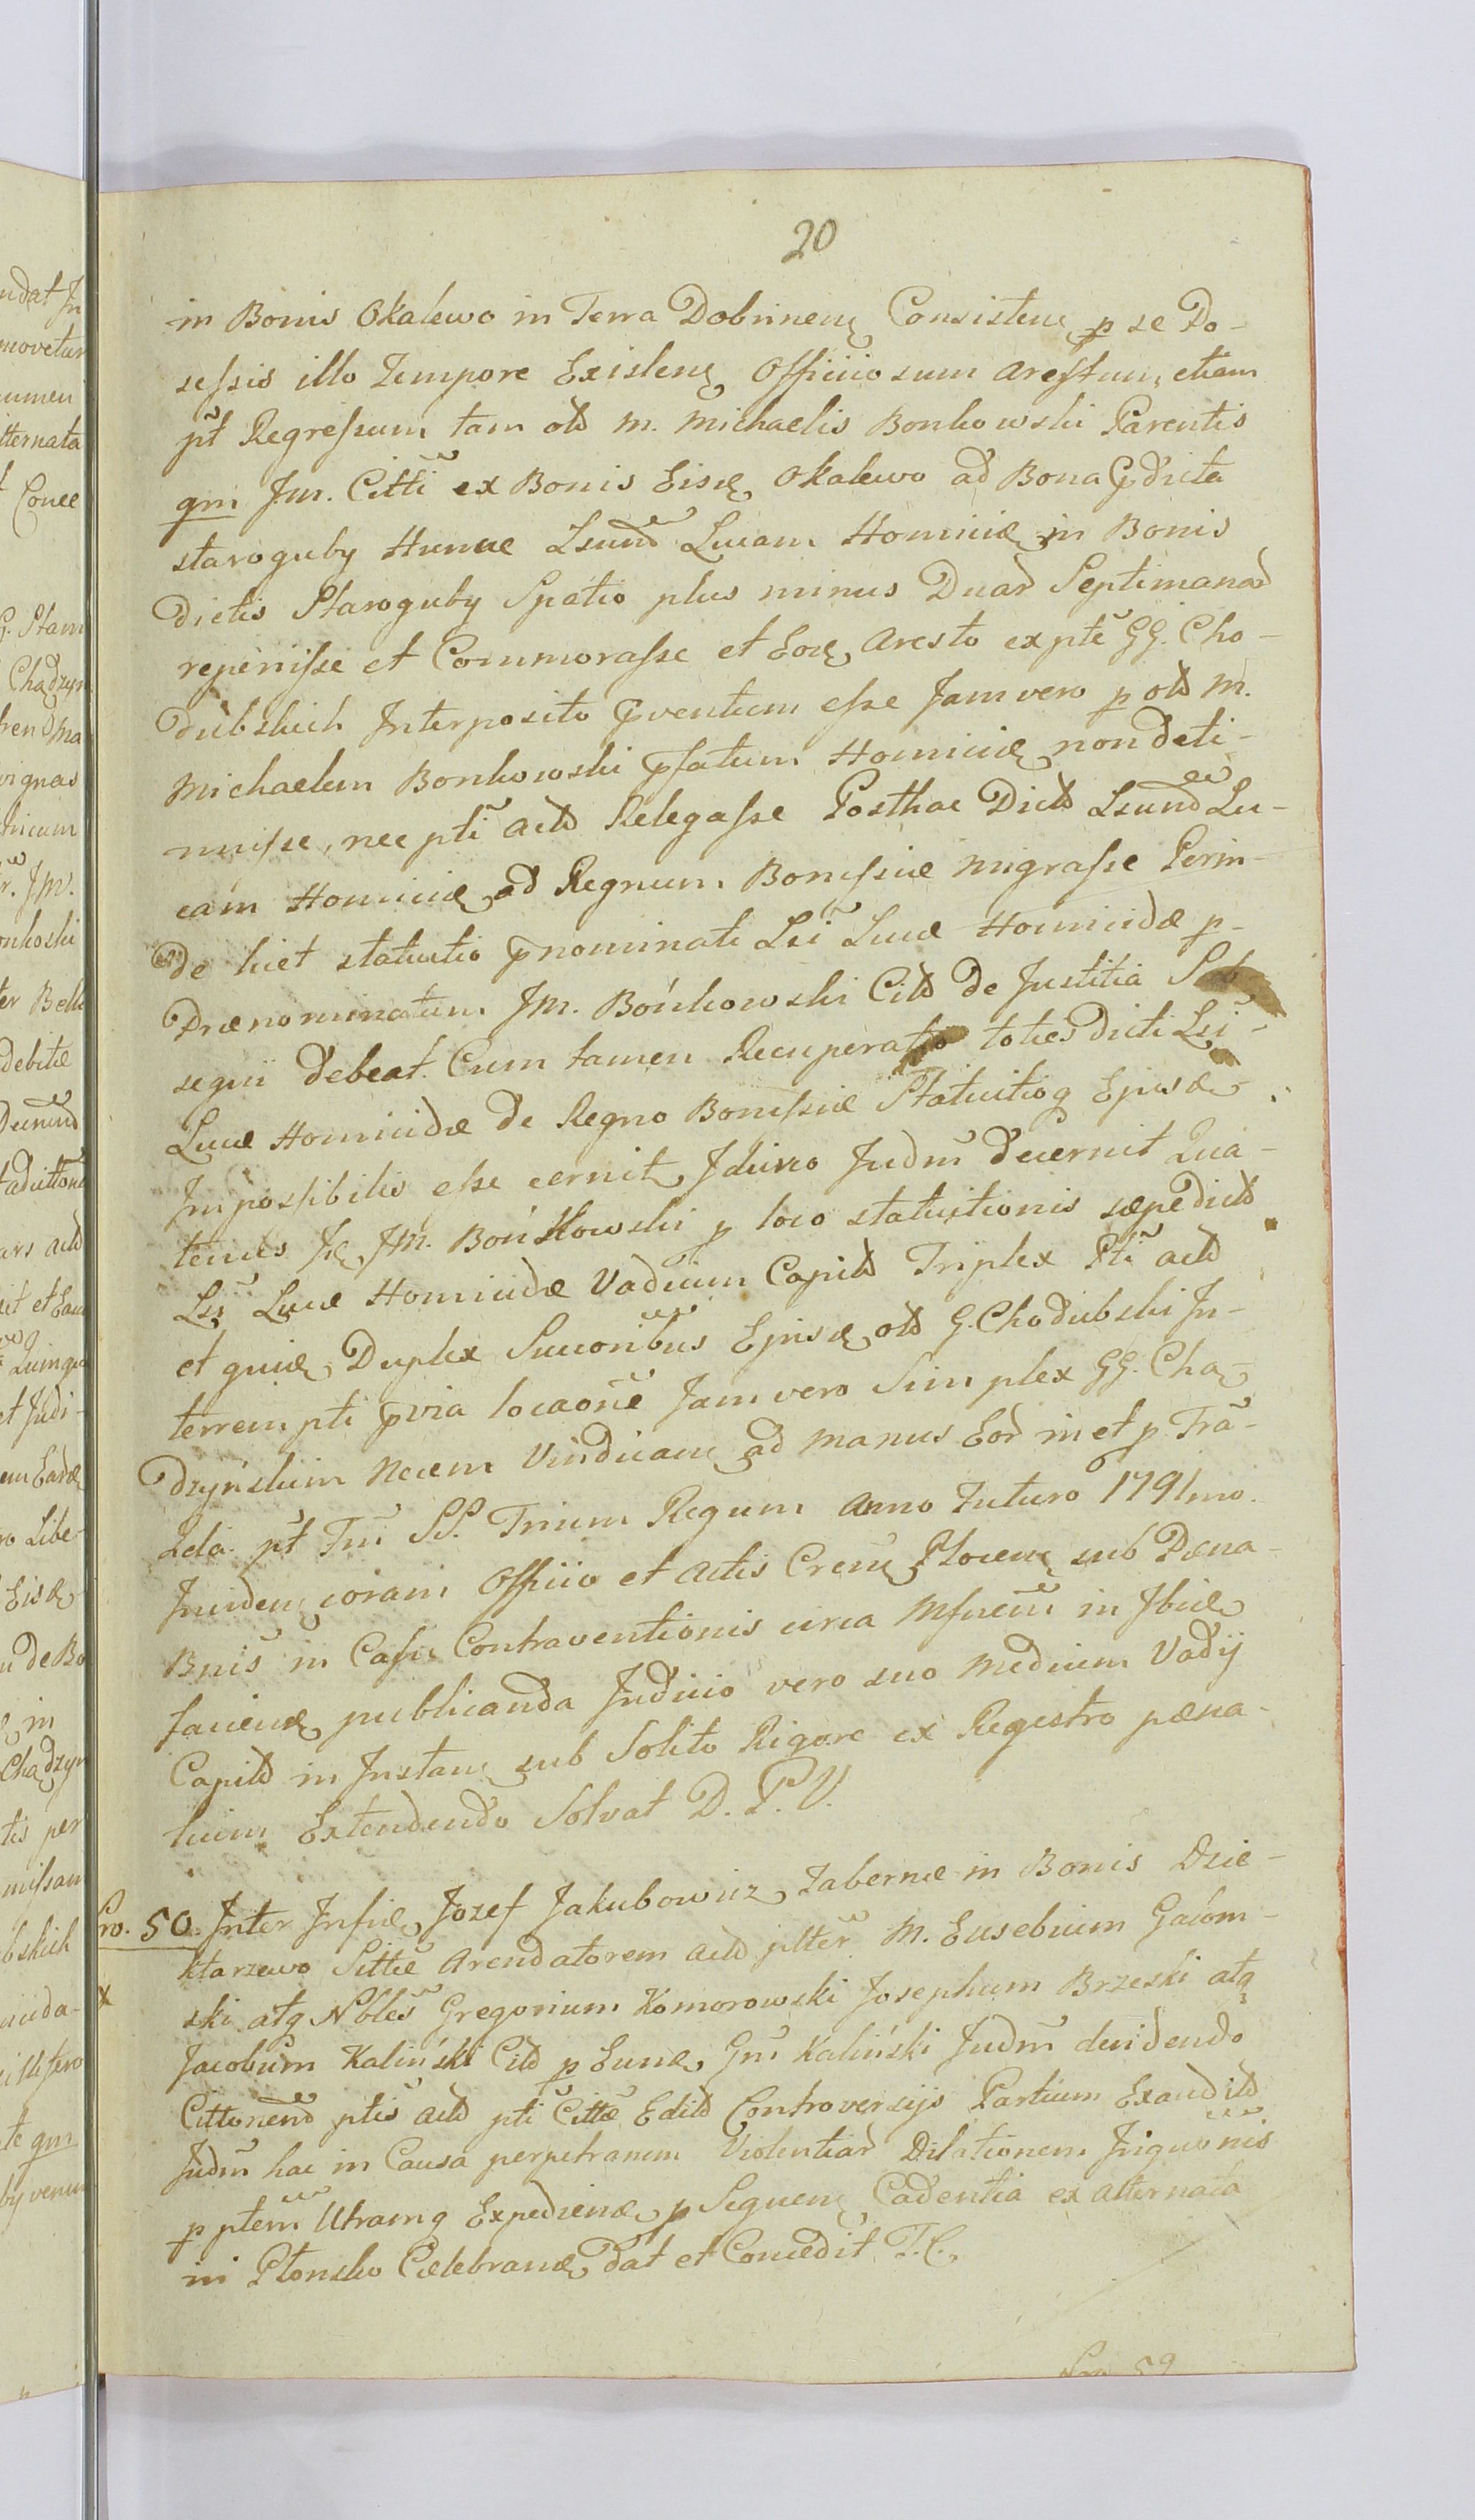 20
in Bonis Okalewo in Terra Dobrinenę Consistenę p se Po-
sessis illo Tempore Existenę Officiosum arestum, etiam
pt Regressum tam olb M. Michaelis Bonkowski Parentis
qm JM. Citti ex Bonis Eisdę Okalewo ad Bona pdicta
staroguby Hunc Lucam Homicidę in Bonis
Dictis Staroguby Spatio plus minus Duar Septimanar
reperiisse et Commorasse et Eodę Aresto ex pte GG. Cho-
dubskich Interposito pventum esse Jam vero p olb M.
Michaelem Bonkowski pfatum Homicidę non deti-
nuisse, nec pti actb Relegasse Posthac Dictb Lu-
cam Homicidę ad Regnum Borussiæ migrasse Perin-
de licet statuitio pnominati Luce Homicidæ p
Prænominatum JM. Bońkowski Citb de Justitia Sub
sequi debeat. Cum tamen Recuperatio toties dicti Lsi
Lucæ Homicidæ de Regno Borussiæ Statuitioq Ejusdę
Impossibilis esse cernit, Idcirco Judm decernit Qua-
tenus Idę JM. Bońkowski p loco statuitionis sæpedictb
Lucæ Homicidæ Vadium Capitb Triplex Pti actb
et quidę Duplex Succoribus Ejusdę olb G. Chodubski In-
terrempti pvia locaone Jam vero Simplex GG. Cha-
dzyńskim Necem Vindican ad manus Eor in et p Tra-
Lela. pt Tm SS. Trium Regum Anno Futuro 1791mo.
Inciden coram Officio et Actis Cren Plocen sub Pæna
Bnis in Casu Contraventionis circa in Ibidę
faciendę publicanda Judicio vero suo medium Vadij
Capitb in Instan sub Solito Rigore ex Registro pæna-
lium Extendendo Solvat D. P. V.
Pro. 50. Inter Infidę Jozef Jakubowicz Tabernæ in Bonis Dzie-
ktarzewo Sittæ Arendatorem actb M. Eusebium Gąióm-
ski atq Nobles Gregorium Komorowski Josephum Brzeski atq
x
Jacobum Kaliński Citb p Eundę Gm Kaliński Judm decidendo
Cittonend ptis actb pti Citte Editb Controversijs Partium Exauditb
Judm hac in Causa perpetrarum Violentiar Dilationem Inquonis
p ptem Utramq Expediendę p Sequen Cadentia ex alternata
in Płonsko Celebrandę dat et Concedit T. C.